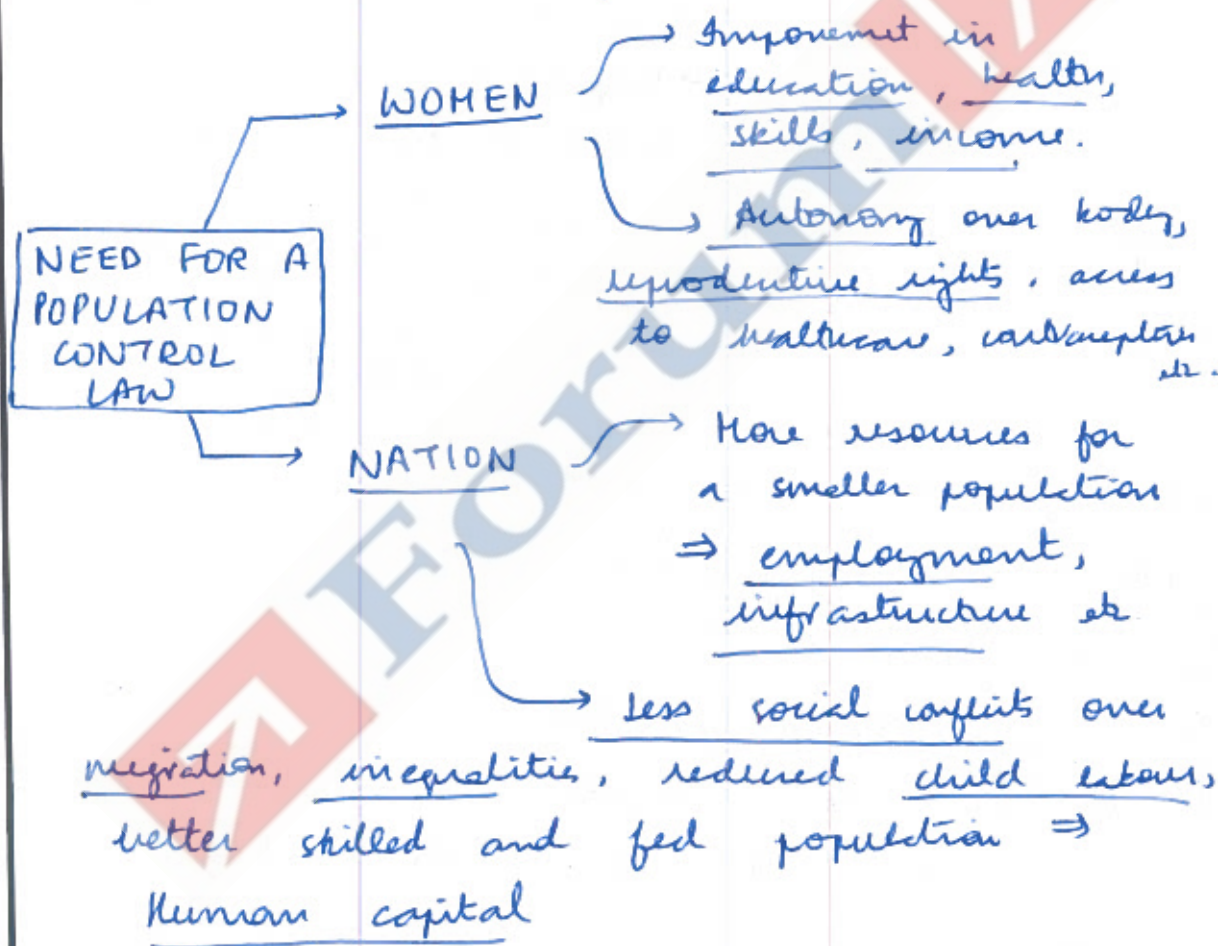 WOMEN
Imporemet in
education, health,
skills, income.
Autonomy over body,
reproductive rights, access
to healthcare, contraceptives
etc.
NEED FOR A
POPULATION
CONTROL
LAW
NATION
More resources for
a smaller population
⇒ employment,
infrastructure etc
Less social conflicts over
migration, inequalities, reduced child labour,
better skilled and fed population ⇒
Human capital
Forum